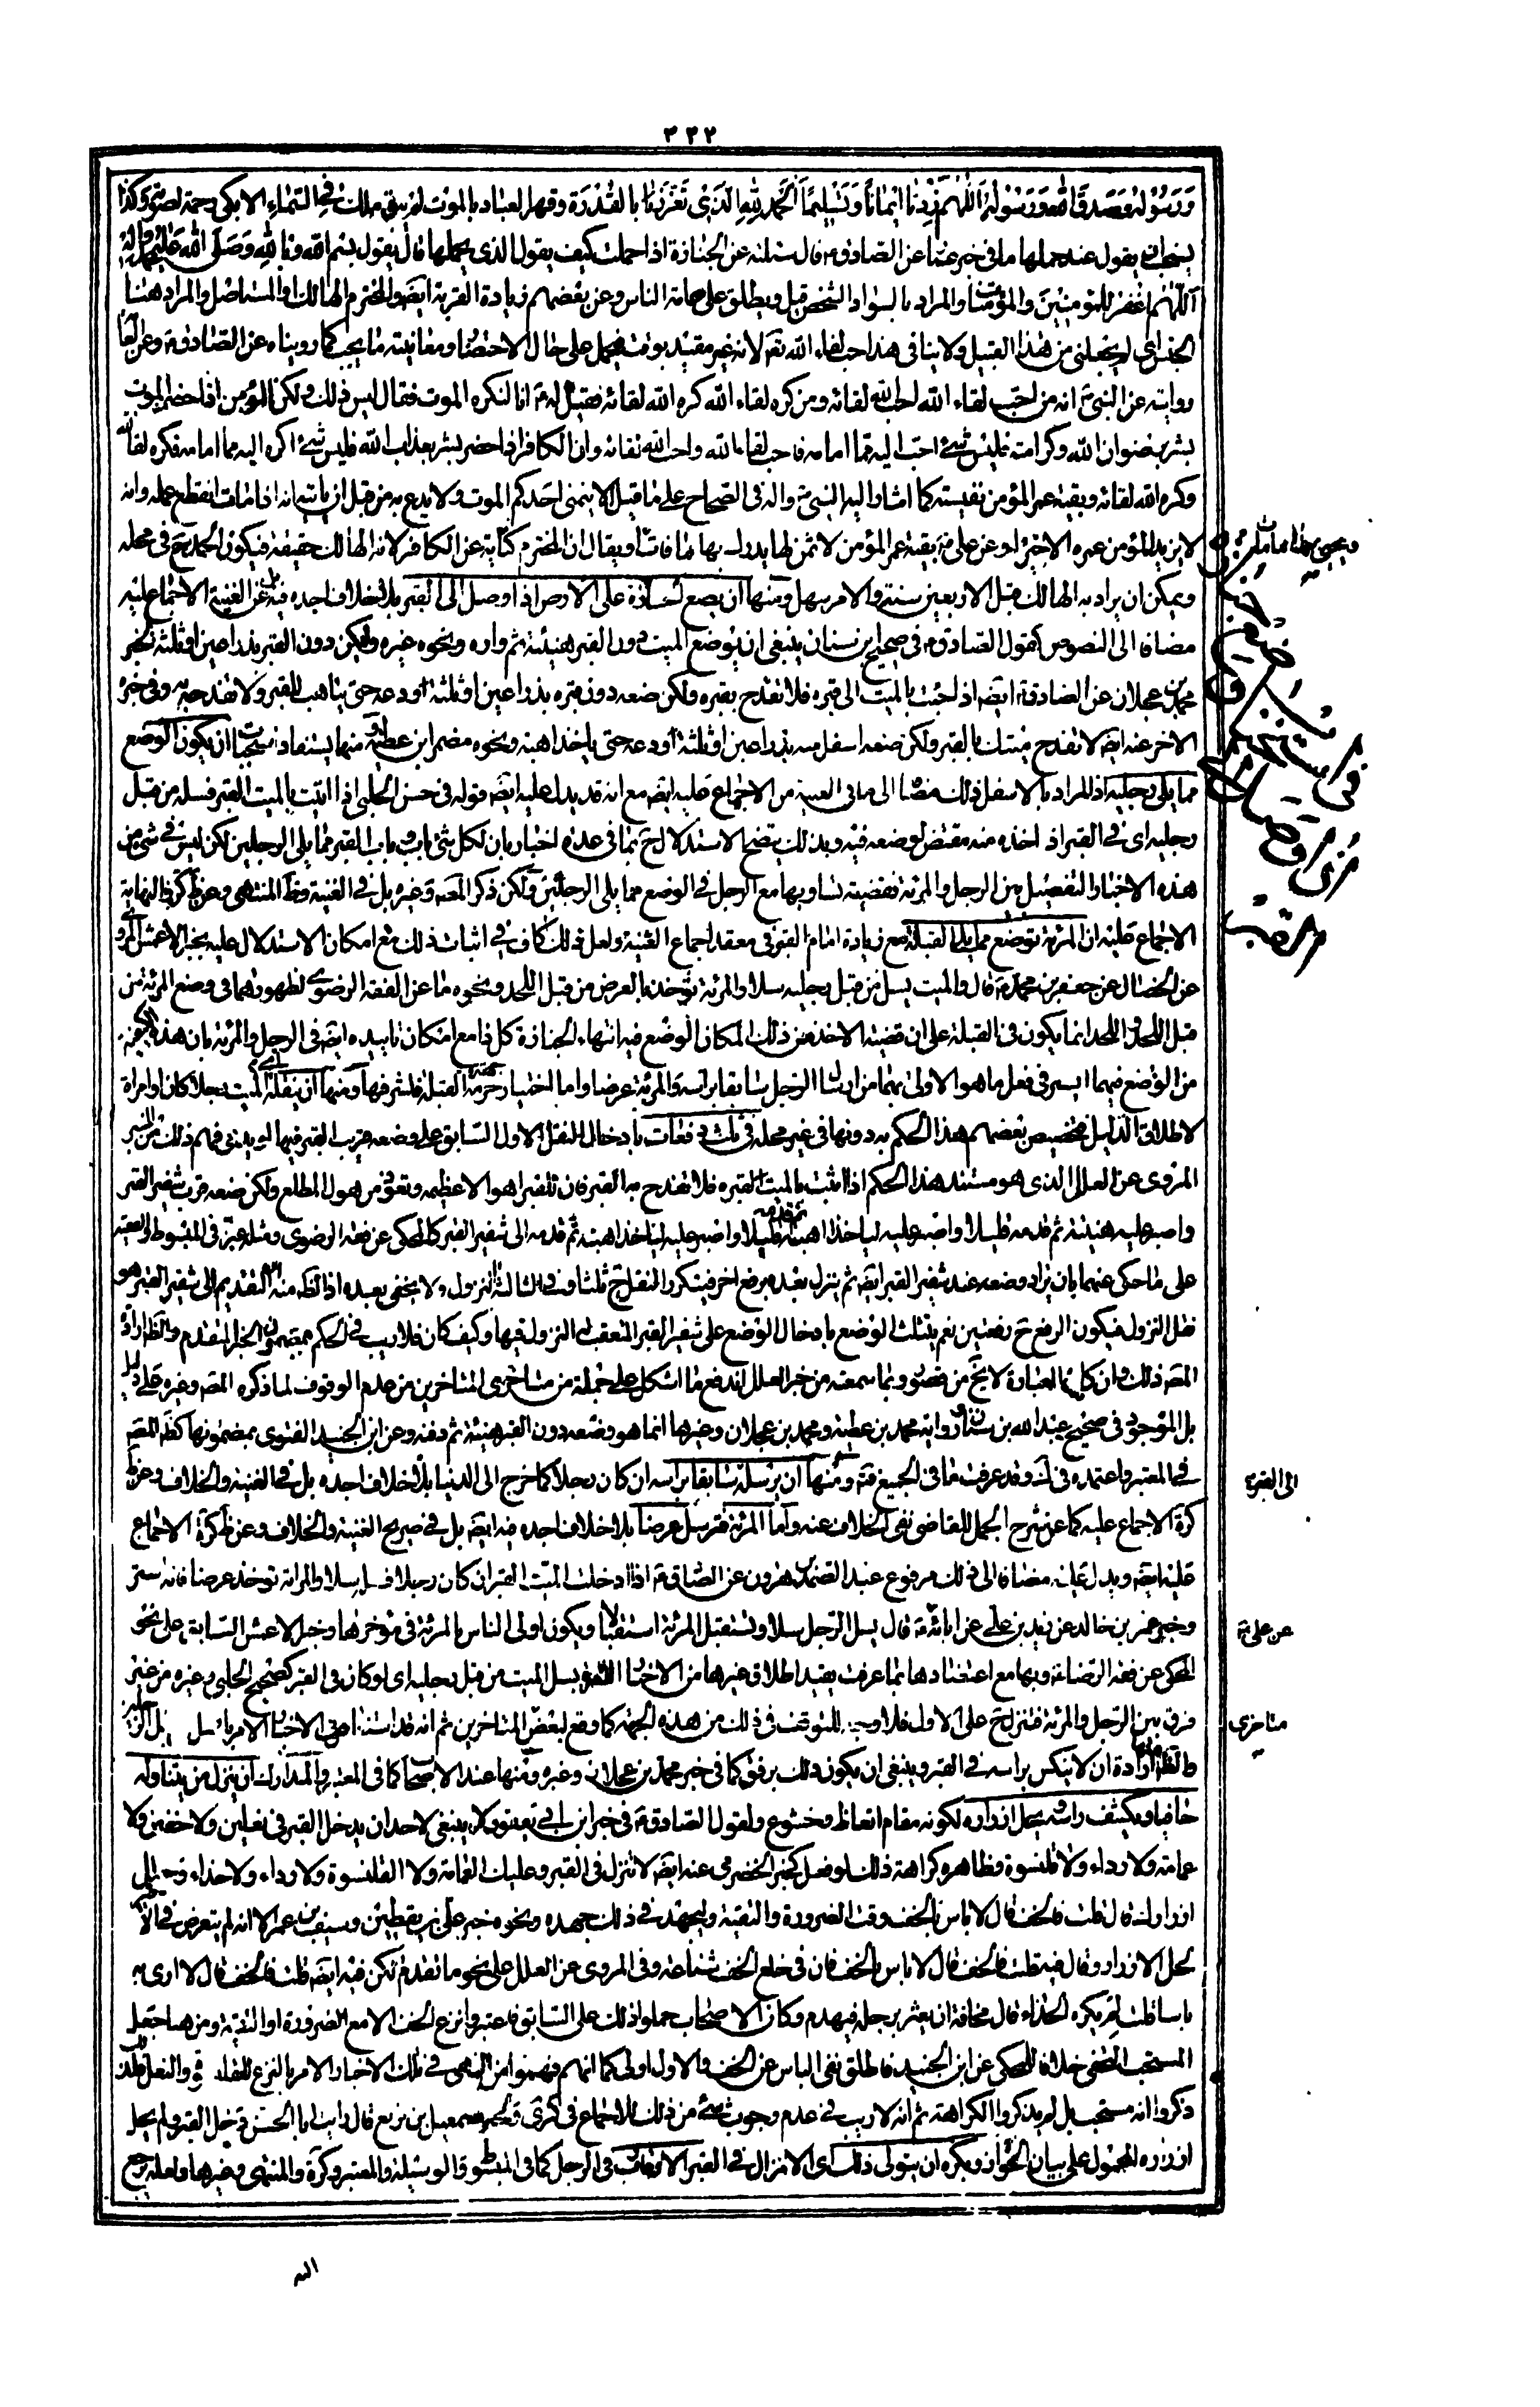 ٣٣٢
وَرَسُولُهُ وَصَدَقَ اللّٰهُ وَرَسُولُهُ اَللّٰهُمَّ زِدْنَا اِيمَانًا وَتَسْلِيمًا اَلْحَمْدُ لِلّٰهِ الَّذِي تَعَزَّزَ بِالْقُدْرَةِ وقهر العباد بالموت لم يبق ملك في السماء الا بكى رحمة لصوته وكذا
يستحب ان يقول عند حملها ما في خبر عمار عن الصادق ع قال سئلته عن الجنازة اذا حملت كيف يقول الذي يحملها قال يقول بسم الله وبالله وصلى الله على محمد وآله
اللهم اغفر للمؤمنين والمؤمنات والمراد بالسواد الشخص قيل ويطلق على عامة الناس وعن بعضهم زيادة القرية ايضا والمخترم الهالك او المستاصل والمراد هنا
الجنس اي لم يجعلني من هذا القبيل ولا ينافي هذا حب لقاء الله تع لانه غير مقيد بوقت فيحمل على حال الاحتضار ومعاينته ما يحب كما رويناه عن الصادق ع وعن العامة
روايته عن النبي ص انه من احب لقاء الله احب الله لقائه ومن كره لقاء الله كره الله لقائه فقيل له ص انا لنكره الموت فقال ليس ذلك ولكن المؤمن اذا حضر الموت
بشر برضوان الله وكرامته فليس شئ احب اليه مما امامه فاحب لقاء الله واحب الله لقائه وان الكافر اذا حضر بشر بعذاب الله فليس شئ اكره اليه مما امامه فكره لقاء الله
وكره الله لقائه وبقية عمر المؤمن نفيسة كما اشار اليه النبي ص واله في الصحاح على ما قيل لا يتمنى احدكم الموت ولا يدع به من قبل ان ياتيه انه اذا مات انقطع عمله وانه
لا يزيد المؤمن عمره الا خيرا وعن علي ع بقية عمر المؤمن لا ثمن لها يدرك بها ما فات او يقال ان المخترم كناية عن الكافر لانه الهالك حقيقة فيكون الحمد ح في محله
ويمكن ان يراد به الهالك قبل الاربعين سنة والامر سهل ومنها ان يضع الجنازة على الارض اذا وصل الى القبر بلا خلاف اجده فيه بل عن الغنية الاجماع عليه
مضافا الى النصوص كقول الصادق ع في صحيح ابن سنان ينبغي ان يوضع الميت دون القبر هنيئة ثم واره ونحوه غيره وليكن دون القبر بذراعين او ثلثة لخبر
محمد بن عجلان عن الصادق ع ايضا اذا جئت بالميت الى قبره فلا تفدحه بقبره ولكن ضعه دون قبره بذراعين او ثلثة اذرع ودعه حتى يتاهب للقبر ولا تفدحه به وفي خبره
الاخر عنه ايضا لا تفدح ميتك بالقبر ولكن ضعه اسفل منه بذراعين او ثلثة ودعه حتى ياخذ اهبته ونحوه مضمر ابن عطية ومنها يستفاد استحباب ان يكون الوضع
مما يلي رجليه اذ المراد بالاسفل ذلك مضافا الى ما في الغنية من الاجماع عليه ايضا مع انه قد يدل عليه ايضا قوله في حسن الحلبي اذا اتيت بالميت القبر فسله من قبل
رجليه اي في القبر اذ اخذه منه مقتض لوضعه فيه وبذلك يتضح الاستدلال ح بما في عدة اخبار بان لكل شئ باب وباب القبر مما يلي الرجلين لكن ليس في شئ من
هذه الاخبار التفصيل بين الرجل والمرئة فقضيته تساويها مع الرجل في الوضع مما يلي الرجلين ولكن ذكر المصنف وغيره بل في الغنية وظ المنتهى وعن ظ كرة والنهاية
الاجماع عليه ان المرئة توضع مما يلي القبلة مع زيادة امام القبر في معقد اجماع الغنية ولعل ذلك كاف في اثبات ذلك مع امكان الاستدلال عليه بخبر الاعمش المروي
عن الخصال عن جعفر بن محمد ع قال والميت يسل من قبل رجليه سلا والمرئة تؤخذ بالعرض من قبل اللحد ونحوه ما عن الفقه الرضوي لظهورهما في وضع المرئة من
قبل اللحد واللحد انما يكون في القبلة على ان قضية الاخذ من ذلك المكان الوضع فيه انتهاء الجنازة كل ذا مع امكان تاييده ايضا في الرجل والمرئة بان هذه الكيفية
من الوضع فيهما ايسر في فعل ما هو الاولى بهما من ارسال الرجل سابقا براسه والمرئة عرضا واما اختيار جهة القبلة فلشرفها ومنها ان ينقله الميت رجلا كان او امراة
لاطلاق الدليل فتخصيص بعضهم هذا الحكم به دونها في غير محله في ثلث دفعات بادخال النقل الاول السابق على وضعه قرب القبر فيها لو يلتزم ذلك من الخبر
المروي عن العلل الذي هو مستند هذا الحكم اذا اتيت بالميت القبر فلا تفدح به القبر فان للقبر اهوالا عظيمة وتعوذ من هول المطلع ولكن ضعه قرب شفير القبر
واصبر عليه هنيئة ثم قدمه قليلا واصبر عليه لياخذ اهبته ثم قدمه الى شفير القبر كالمحكي عن فقه الرضوي ومثله عبر في المبسوط والفقيه
على ما حكي عنهما بان يزاد وضعه عند شفير القبر ايضا ثم ينزل بعده برفع اخر فيتكرر النقل ح ثلثا وفي الثالث النزول ولا يخفى بعده اذ الظ منه التقديم الى شفير القبر هو
قبل النزول فيكون الرفع ح دفعتين نعم يتثلث الوضع بادخال الوضع على شفير القبر المتعقب له النزول فيها وكيف كان فلا ريب في الحكم بمضمون الخبر المتقدم والظ ارادة
المصنف ذلك وان كان العبارة لا تخ من قصور وبما سمعته من خبر العلل اندفع ما اشكل على جملة من متاخري المتاخرين من عدم الوقوف لما ذكره المصنف وغيره على دليل
بل الموجود في صحيح عبد الله بن سنان ورواية محمد بن عطية ومحمد بن عجلان وغيرها انما هو وضعه دون القبر هنيئة ثم دفنه وعن ابن الجنيد الفتوى بمضمونها كظ المصنف
في المعتبر واعتمده في ك وقد عرفت ما في الجميع فتدبر ومنها ان يرسله سابقا براسه ان كان رجلا كما خرج الى الدنيا بلا خلاف اجده بل في الغنية والخلاف وعن ظ
كرة الاجماع عليه كما عن شرح الجمل للقاضي نفي الخلاف عنه واما المرئة فترسل عرضا بلا خلاف اجده فيه ايضا بل في صريح الغنية والخلاف وعن ظ كرة الاجماع
عليه ايضا ويدل عليه مضافا الى ذلك مرفوع عبد الصمد بن هرون عن الصادق ع اذا ادخلت الميت القبر ان كان رجلا يسل سلا والمراة تؤخذ عرضا فانه استر
وخبر عمر بن خالد عن زيد بن علي عن ابائه ع قال يسل الرجل سلا وتستقبل المرئة استقبالا ويكون اولى الناس بالمرئة في مؤخرها وخبر الاعمش السابق على نحو
المحكي عن فقه الرضا ع وبها مع اعتضادها بما عرفت يقيد اطلاق غيرها من الاخبار الامرة بسل الميت من قبل رجليه اي لو كان في القبر كصحيح الحلبي وغيره من غير
فرق بين الرجل والمرئة فتنزل ح على الاول فلا وجه للتوقف في ذلك من هذه الجهة كما وقع لبعض المتاخرين ثم انه قد استفاض الاخبار الامر بالسل
والظ ارادة ان لا ينكس براسه في القبر وينبغي ان يكون ذلك برفق كما في خبر محمد بن عجلان وغيره ومنها عند الاصحاب كما في المعتبر والمدارك ان ينزل من يتناوله
حافيا ويكشف راسه ويحل ازراره لكونه مقام اتعاظ وخشوع ولقول الصادق ع في خبر ابن ابي يعفور لا ينبغي لاحد ان يدخل القبر في نعلين ولا خفين ولا
عمامة ولا رداء ولا قلنسوة وظاهره كراهة ذلك لو فعل كخبر الحضرمي عنه ايضا لا تنزل في القبر وعليك العمامة ولا القلنسوة ولا رداء ولا حذاء وحلل
ازرارك قال قلت فالخف قال لا باس بالخف وقت الضرورة والتقية وليجهد في ذلك جهده ونحوه خبر علي بن يقطين وسيف بن عميرة الا انه لم يتعرض في الاول
لحل الازرار وقال فيه قلت فالخف قال لا باس بالخف فان في خلع الخف شناعة وفي المروي عن العلل على نحو ما تقدم لكن فيه ايضا قلت فالخف قال لا ارى به
باسا قلت لم يكره الحذاء قال مخافة ان يعثر برجله فيهدم وكان الاصحاب حملوا ذلك على السابق فاعتبروا نزع الخف الا مع الضرورة او التقية ومن هنا جعل
المستحب التحفي خلافا للمحكي عن ابن الجنيد فاطلق نفي الباس عن الخف والاول اولى كما انهم فهموا من النهي في تلك الاخبار الامر بالنزع
ذكروا انه مستحب بل لم يذكروا الكراهة ثم انه لا ريب في عدم وجوب شئ من ذلك للاجماع في كرى وخبر محمد بن اسمعيل بن بزيع قال رايت ابا الحسن ع دخل القبر ولم يحل
ازراره المحمول على بيان الجواز ويكره ان يتولى ذلك اي الانزال في القبر الاقارب في الرجل كما في المبسوط والوسيلة والمعتبر وكرة والمنتهى وغيرها ولعله يرجع
الى القبر
عن علي ع
متاخري
اليه